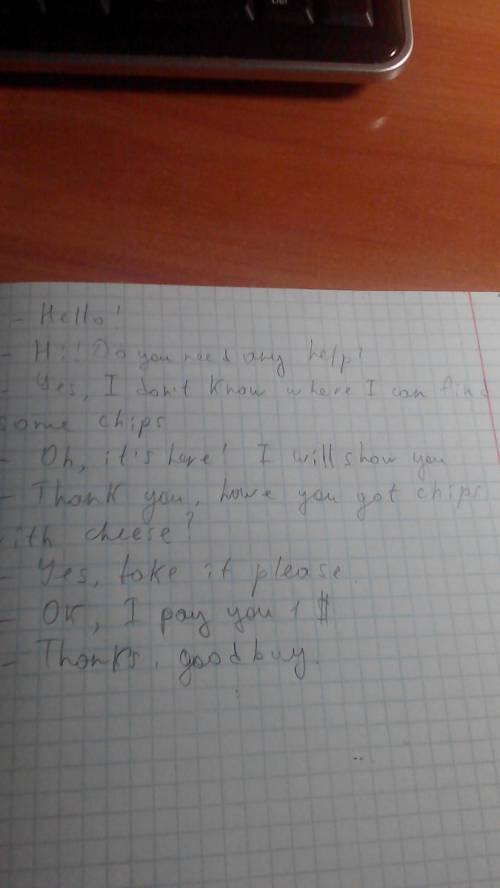 - Hello!
- Hi! Do you need any help!
- Yes, I don't know where I can find
some chips
- Oh, it's here! I will show you
- Thank you, have you got chips
with cheese?
- Yes, take it please.
- OK, I pay you 1 $
- Thanks, goodbuy.